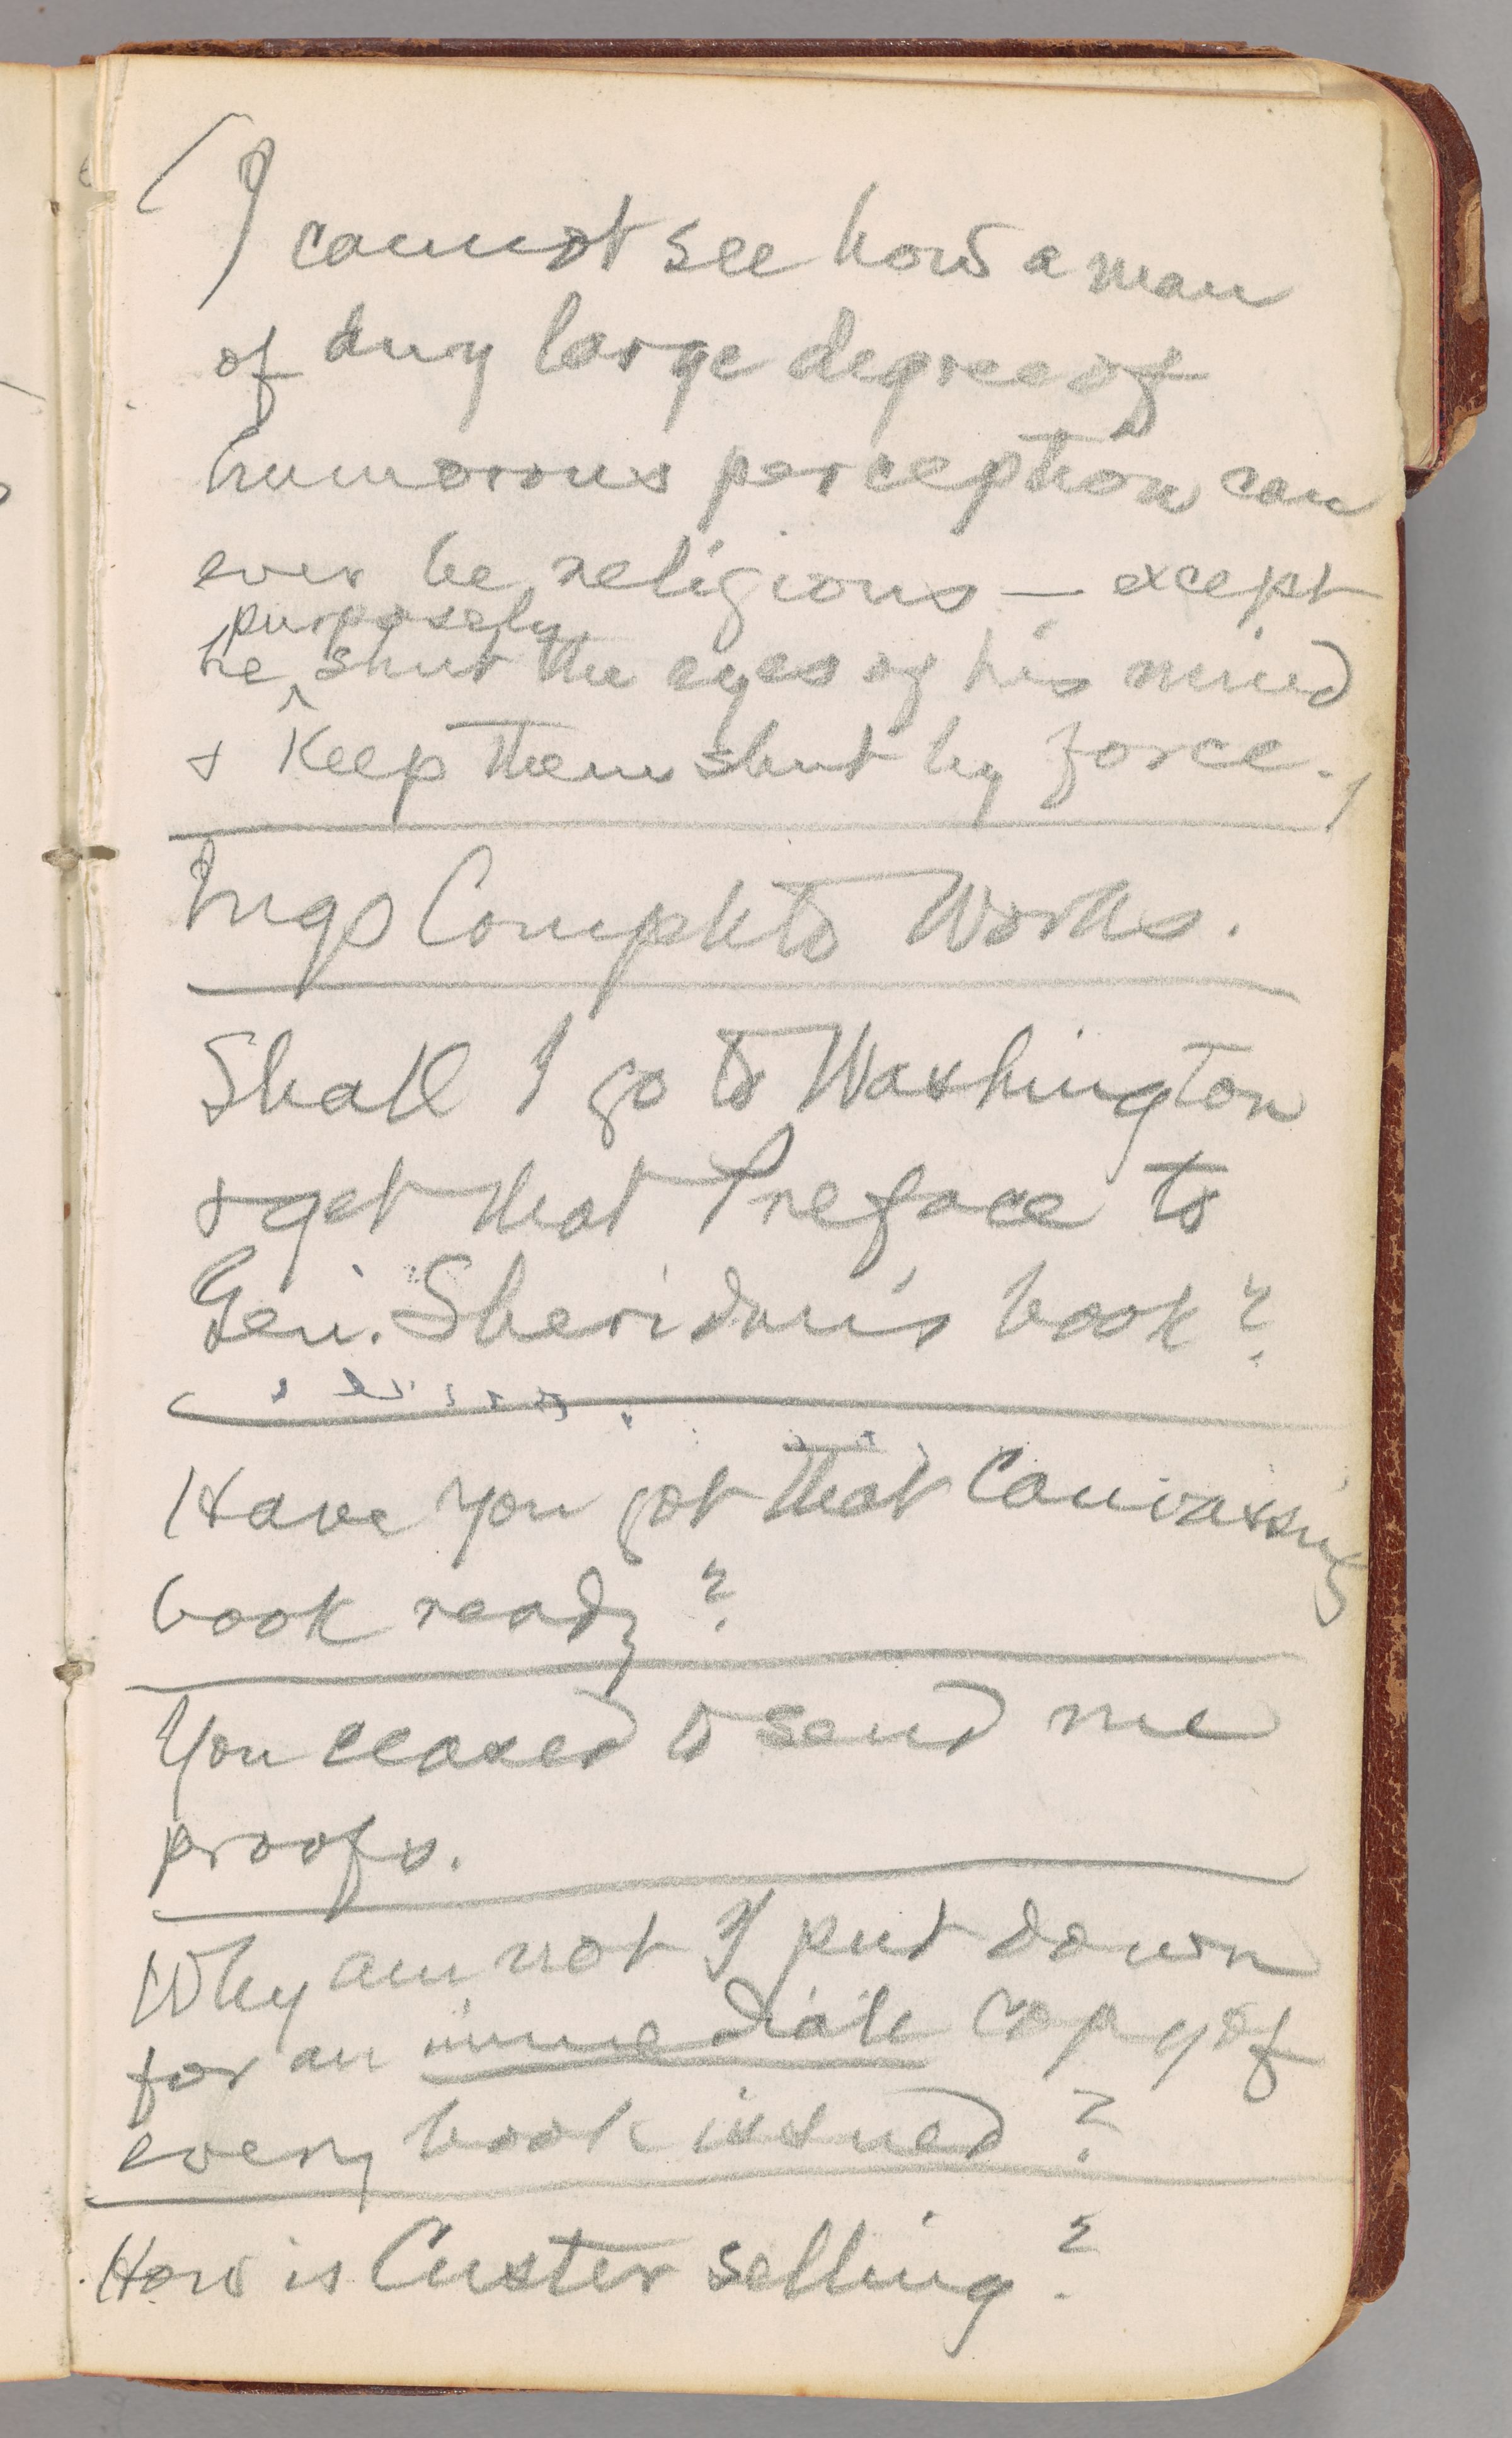 (I cannot see how a man
of any large degree of
humorous perception can
ever be religious — except
purposely
he ^ shut the eyes of his mind
& keep them shut by force.)
Ingo Complete Works.
Shall I go to Washington
& get that Preface to
Gen. Sheridan's book?
Have you got that Canvassing
book ready?
You ceased to send me
proofs.
Why am not I put down
for an immediate copy of
every book issued?
How is Custer selling?